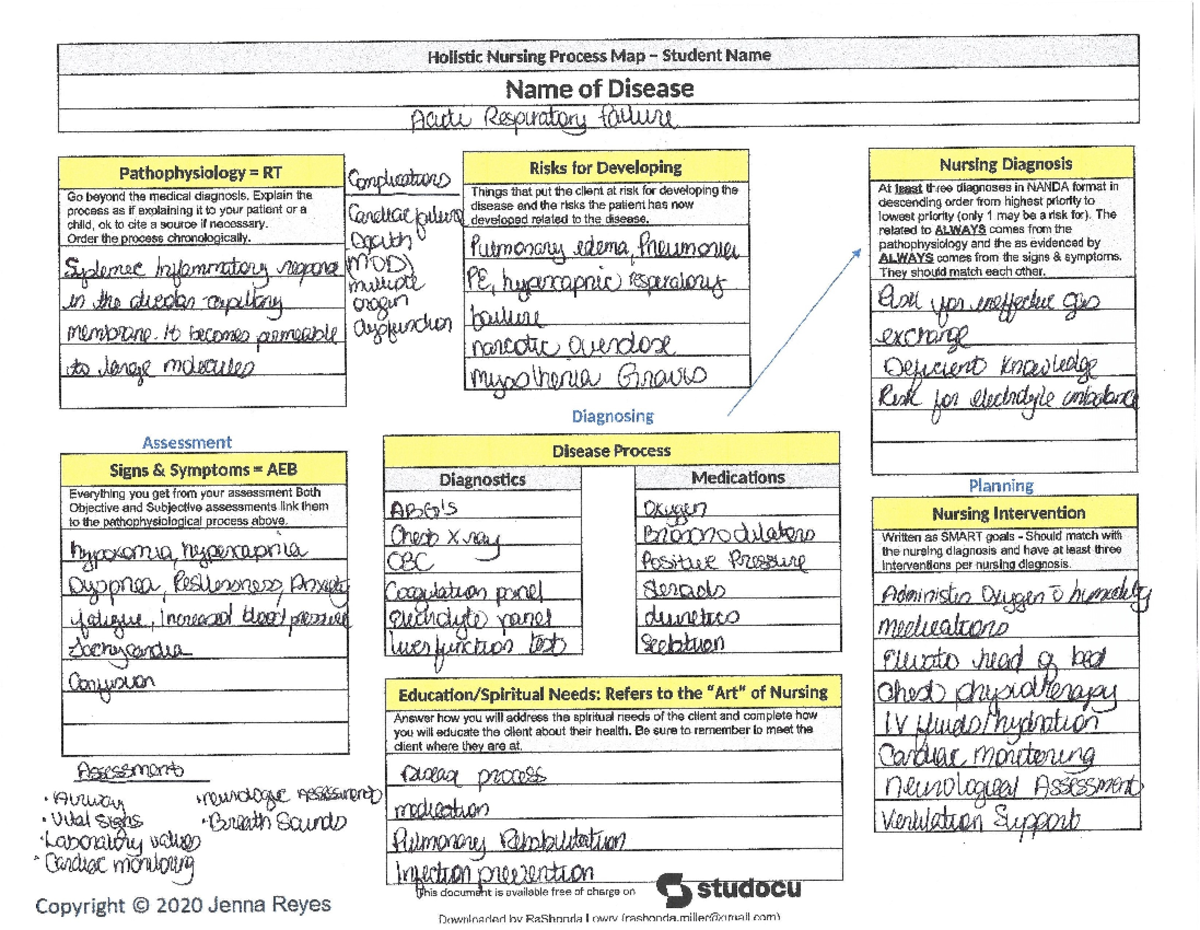 Holistic Nursing Process Map – Student Name
Name of Disease
Acute Respiratory failure
Pathophysiology = RT
Go beyond the medical diagnosis. Explain the
process as if explaining it to your patient or a
child, ok to cite a source if necessary.
Order the process chronologically.
Systemec Inflammatory
in the
membrane. It becomes permeable
to large molecules
Complications
Cardiac failure
Death
MODS
multiple
organ
dysfunction
Risks for Developing
Things that put the client at risk for developing the
disease and the risks the patient has now
developed related to the disease.
Pulmonary edema, Pneumonia
PE, hypercapnic respiratory
failure
narcotic overdose
Nursing Diagnosis
At least three diagnoses in NANDA format in
descending order from highest priority to
lowest priority (only 1 may be a risk for). The
related to ALWAYS comes from the
pathophysiology and the as evidenced by
ALWAYS comes from the signs & symptoms.
They should match each other.
Risk for ineffective gas
exchange
Deficient Knowledge
Risk for electrolyte imbalance
Diagnosing
Assessment
Signs & Symptoms = AEB
Everything you get from your assessment Both
Objective and Subjective assessments link them
to the pathophysiological process above.
hypoxemia, hypercapnia
Dyspnea, Restlessness, Anxiety
fatigue, Increased blood pressure
Tachycardia
Confusion
Disease Process
Diagnostics
ABG's
Chest X ray
CBC
Coagulation panel
electrolyte panel
liver function test
Medications
Oxygen
Positive Pressure
steroids
diuretics
Planning
Nursing Intervention
Written as SMART goals - Should match with
the nursing diagnosis and have at least three
interventions per nursing diagnosis.
Administer Oxygen c̄ humidity
medications
Elevate head of bed
Chest physiotherapy
IV fluids/hydration
Cardiac monitoring
Neurological Assessment
Ventilation Support
Education/Spiritual Needs: Refers to the "Art" of Nursing
Answer how you will address the spiritual needs of the client and complete how
you will educate the client about their health. Be sure to remember to meet the
client where they are at.
Disease process
medication
Pulmonary Rehabilitation
Infection prevention
Assessment
· Airway
· Vital Signs
· Laboratory values
· Cardiac monitoring
· neurologic Assessment
· Breath Sounds
This document is available free of charge on
studocu
Copyright © 2020 Jenna Reyes
Downloaded by RaShonda Lowry (rashonda.miller@gmail.com)